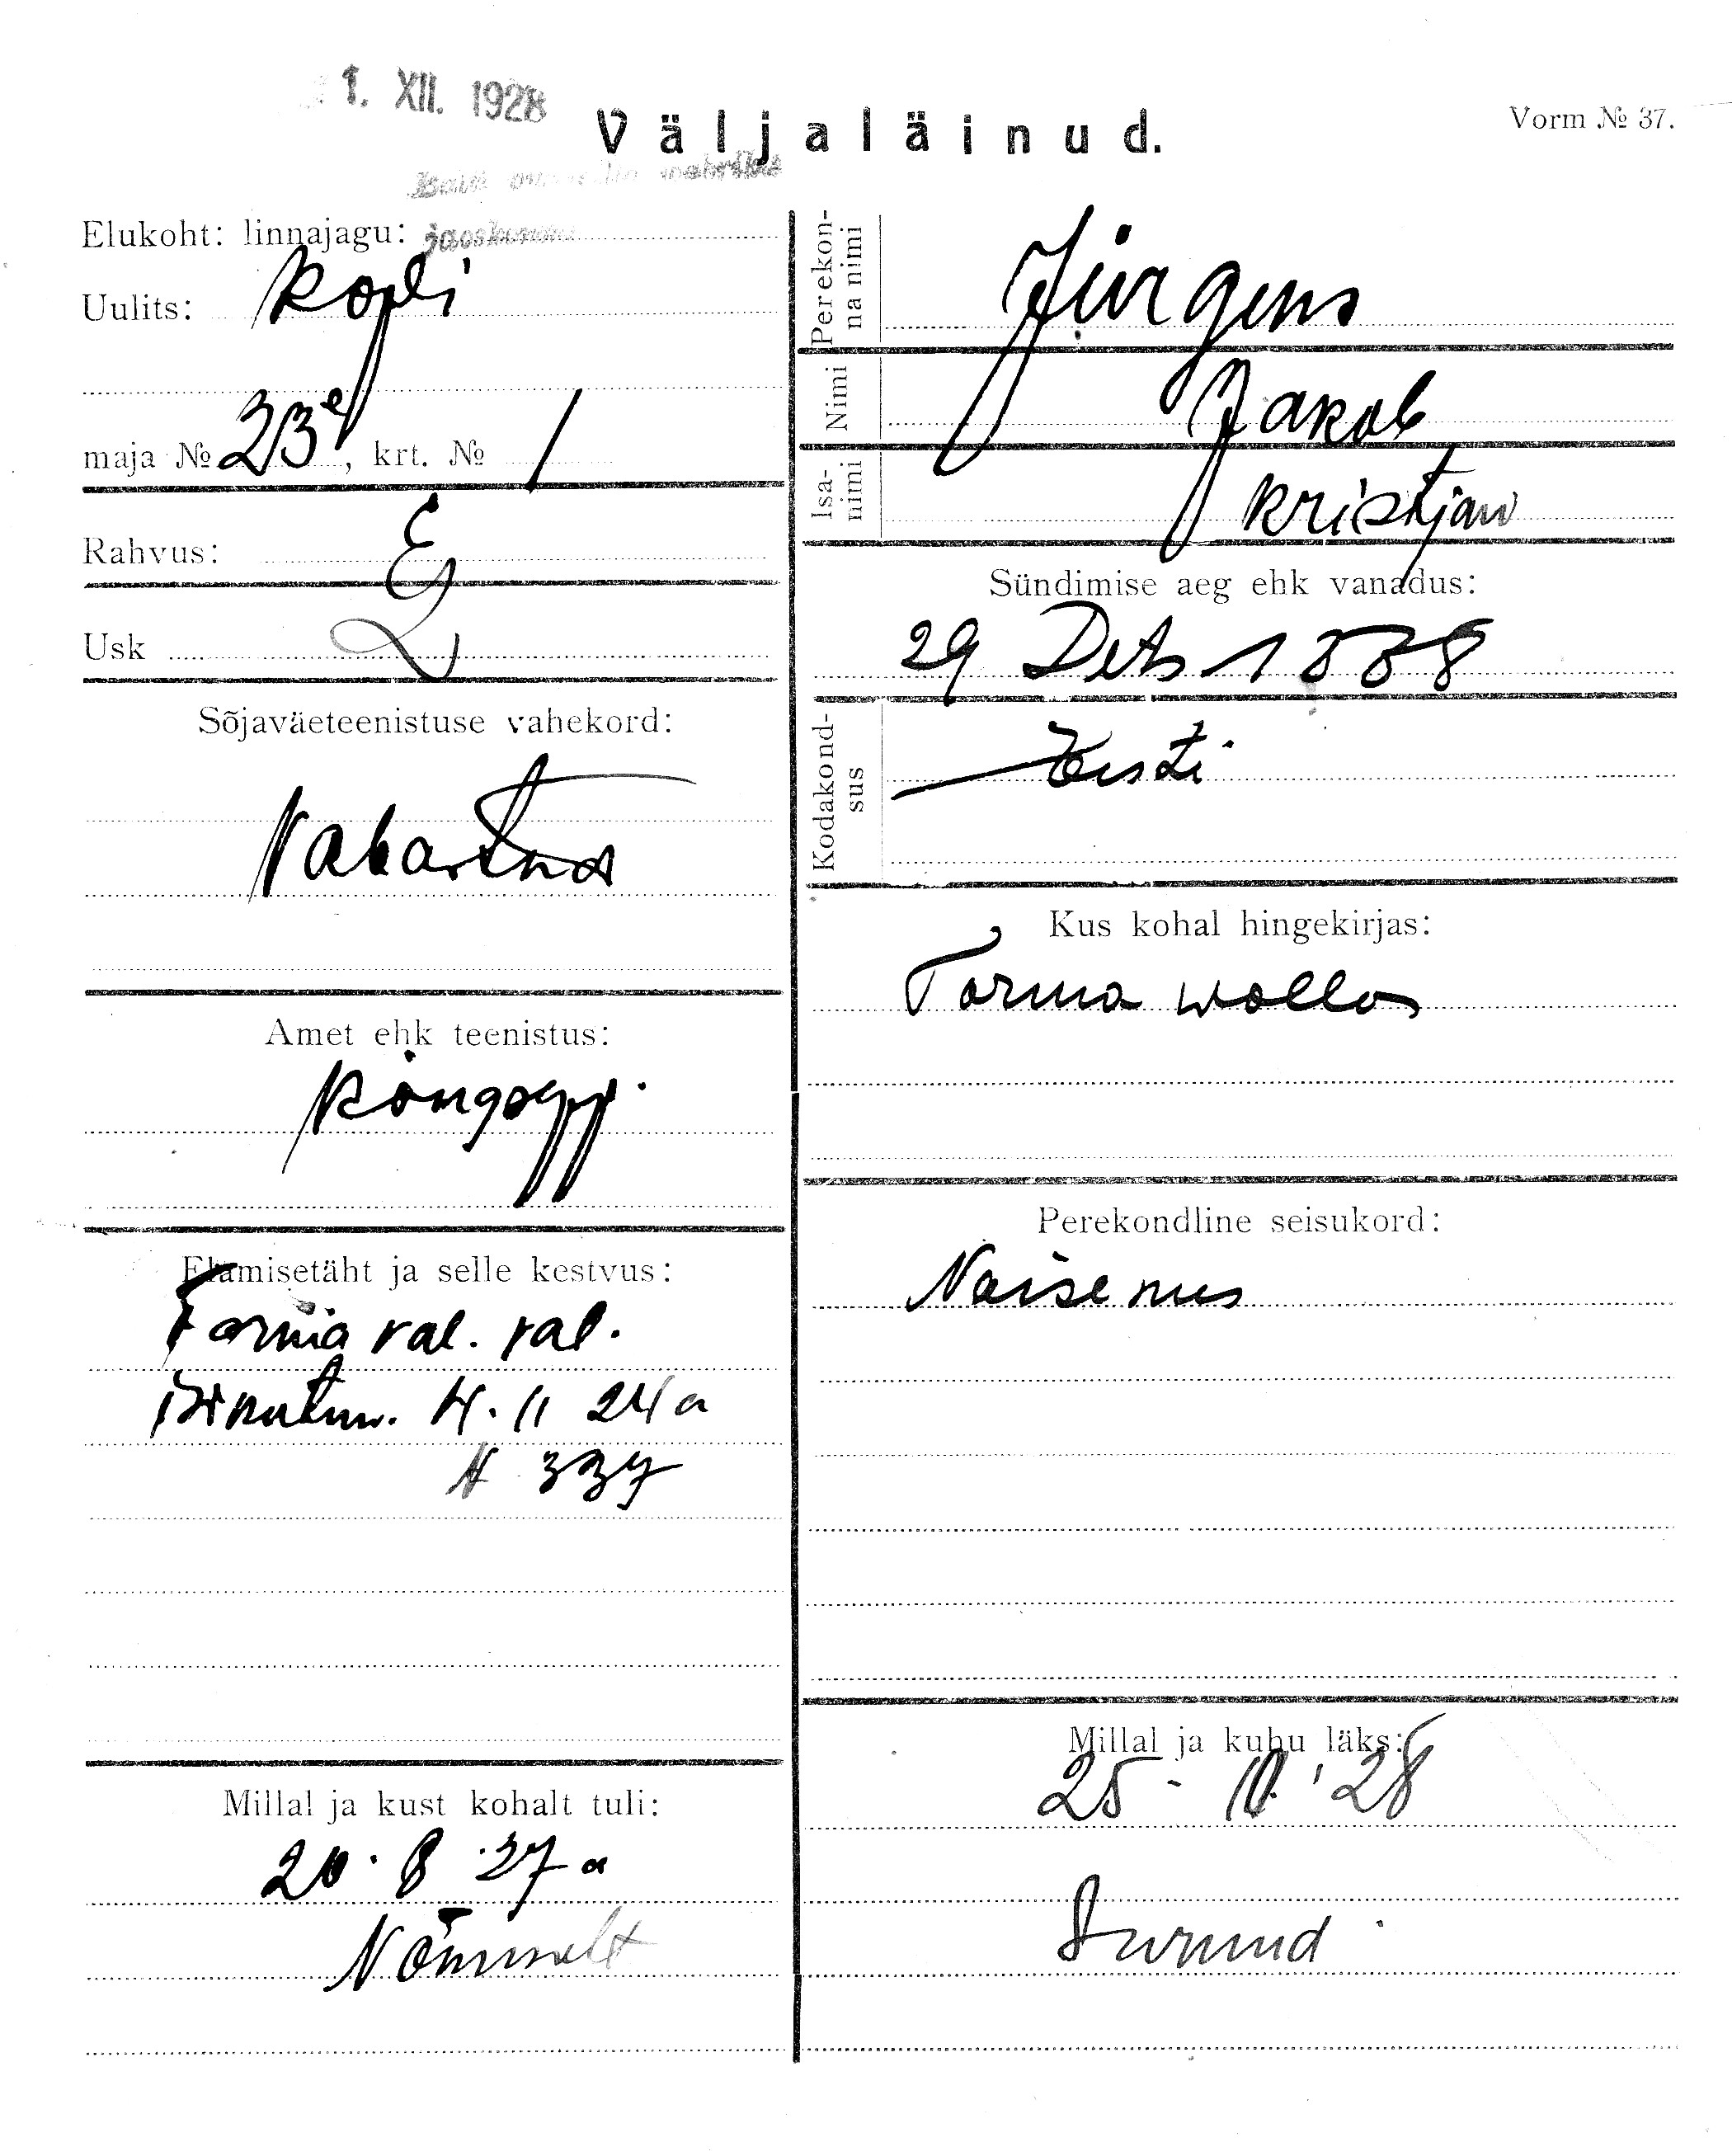 1. XII. 1928
Väljaläinud.
Vorm № 37.
Elukoht: linnajagu: jaoskonna
Uulits: Kopli
maja № 23e, krt. № 1
Rahvus: E
Usk L
Sõjaväeteenistuse vahekord:
Vabastud
Amet ehk teenistus:
Kingsepp.
Elamisetäht ja selle kestvus:
Torma val. val.
isikutun. 4. 11 24 a
N 337
Millal ja kust kohalt tuli:
20. 8. 27 a
Nõmmelt
Perekonna nimi
Jürgens
Nimi
Jakob
Isa-nimi
Kristjan
Sündimise aeg ehk vanadus:
29 Dets 1888
Kodakondsus
Eesti
Kus kohal hingekirjas:
Torma wallas
Perekondline seisukord:
Naisemees
Millal ja kuhu läks:
25 - 10. 28
Surnud